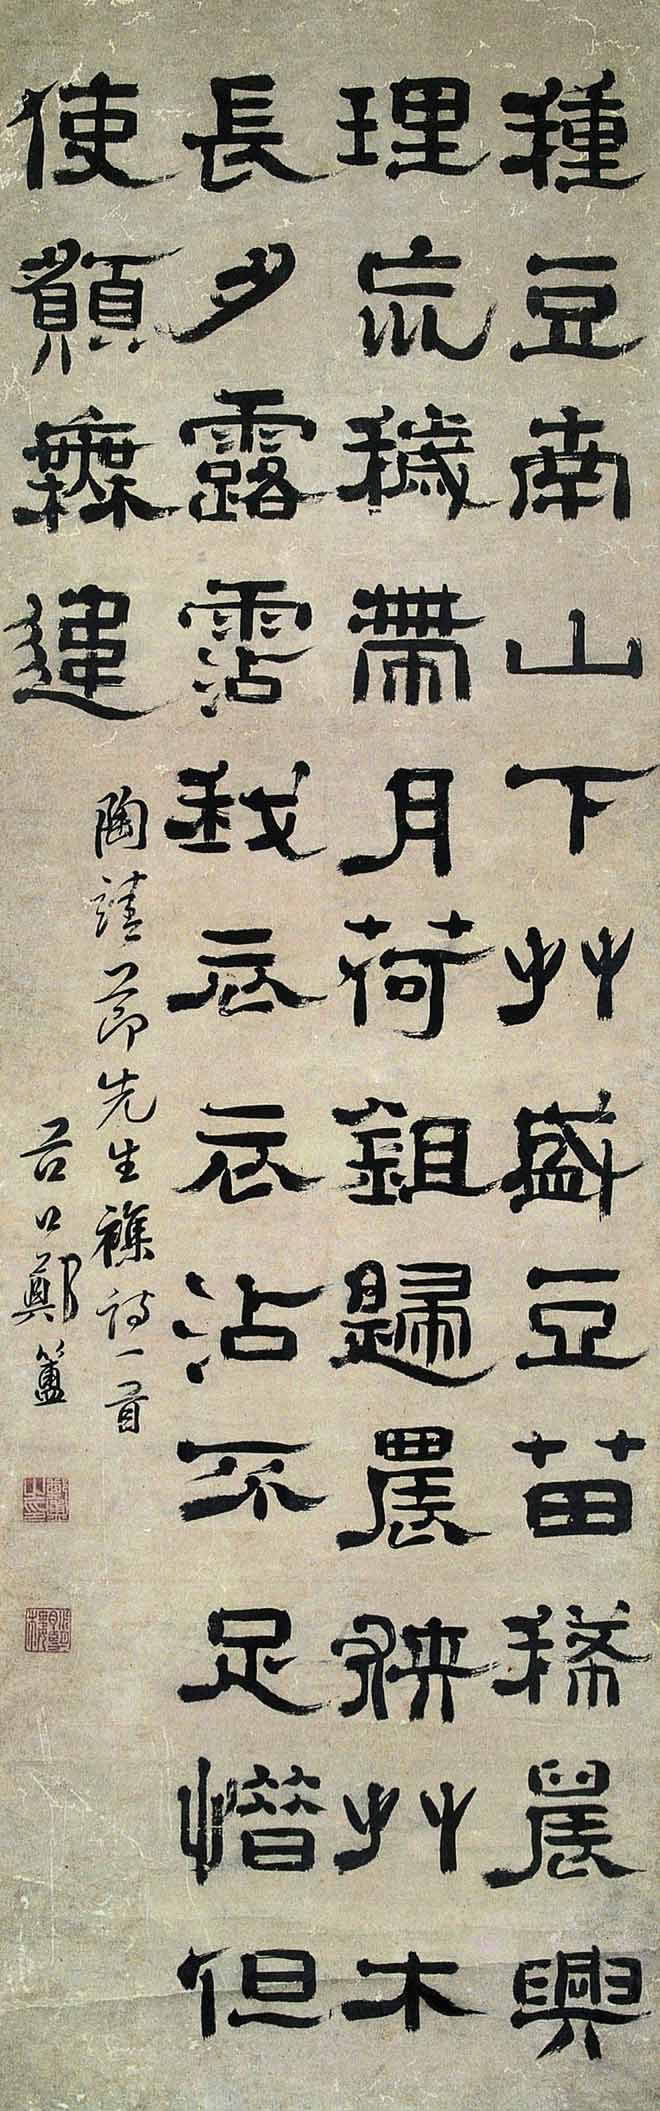 種豆南山下艸盛豆苗稀晨興
理巟穢帶月荷鉏歸狹艸木
長夕露霑我衣衣沾不足惜但
使願無違
陶靖節先生襍詩一首
谷口鄭簠